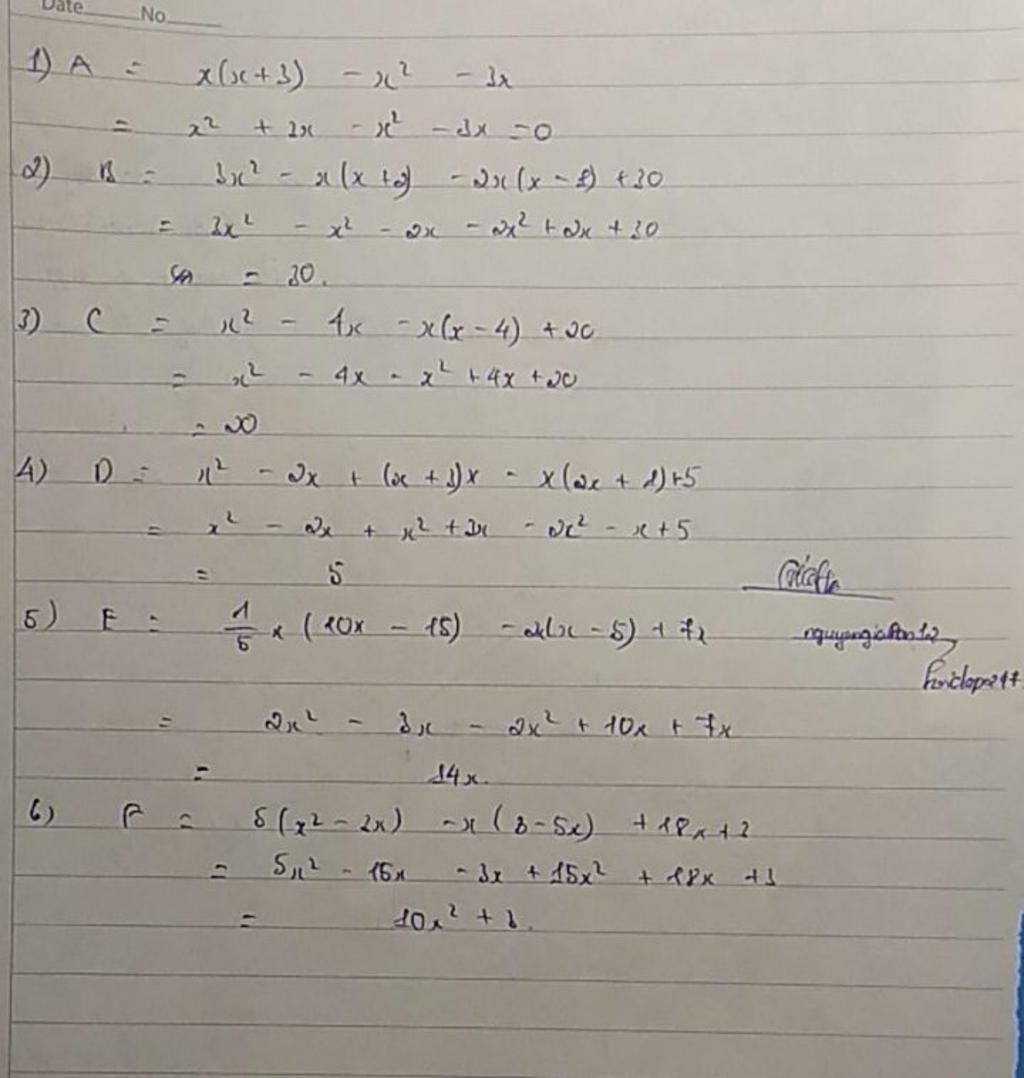 Date No
1) A = x(x+3) - x² - 3x
= x² + 3x - x² - 3x = 0
2) B = 3x² - x(x+2) - 2x(x-1) + 30
= 3x² - x² - 2x - 2x² + 2x + 30
= 30.
3) C = x² - 4x - x(x-4) + 20
= x² - 4x - x² + 4x + 20
= 20
4) D = x² - 2x + (x+3)x - x(2x+1)+5
= x² - 2x + x² + 3x - 2x² - x + 5
= 5
5) E = 1/5 x (10x - 15) - 2x(x-5) + 7x
= 2x² - 3x - 2x² + 10x + 7x
= 14x.
6) F = 5(x² - 3x) - x(3-5x) + 18x + 3
= 5x² - 15x - 3x + 15x² + 18x + 3
= 10x² + 3.